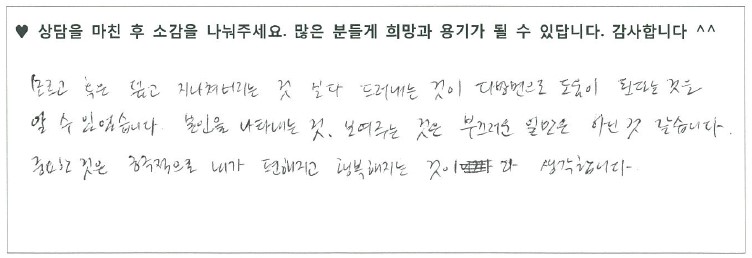 ♥ 상담을 마친 후 소감을 나눠주세요. 많은 분들게 희망과 용기가 될 수 있답니다. 감사합니다 ^^
모르고 혹은 덮고 지나쳐버리는 것 보다 드러내는 것이 다방면으로 도움이 된다는 것을
알 수 있었습니다. 본인을 나타내는 것, 보여주는 것은 부끄러운 일만은 아닌 것 같습니다.
중요한 것은 궁극적으로 내가 편해지고 행복해지는 것이라 생각합니다.